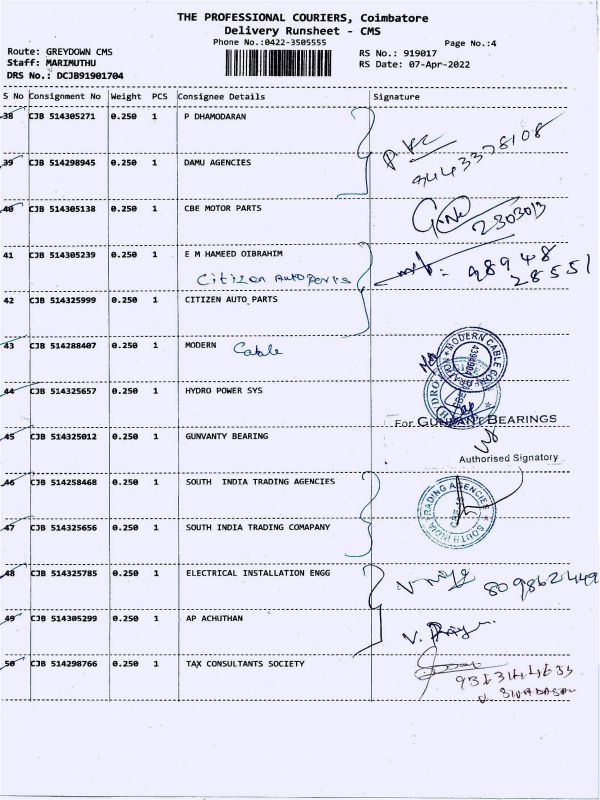 THE PROFESSIONAL COURIERS, Coimbatore
Delivery Runsheet - CMS
Phone No.:0422-3505555
Page No.:4
Route: GREYDOWN CMS
RS No.: 919017
Staff: MARIMUTHU
RS Date: 07-Apr-2022
DRS No.: DCJB91901704
S No Consignment No Weight PCS Consignee Details Signature
38 CJB 514305271 0.250 1 P DHAMODARAN
39 CJB 514298945 0.250 1 DAMU AGENCIES
40 CJB 514305138 0.250 1 CBE MOTOR PARTS
2303013
41 CJB 514305239 0.250 1 E M HAMEED OIBRAHIM
98948
28551
Citizen Auto Parts
42 CJB 514325999 0.250 1 CITIZEN AUTO PARTS
43 CJB 514288407 0.250 1 MODERN Cable
MODERN CABLE
44 CJB 514325657 0.250 1 HYDRO POWER SYS
For GUNVANT BEARINGS
45 CJB 514325012 0.250 1 GUNVANTY BEARING
Authorised Signatory
46 CJB 514258468 0.250 1 SOUTH INDIA TRADING AGENCIES
SOUTH INDIA TRADING AGENCIES
47 CJB 514325656 0.250 1 SOUTH INDIA TRADING COMAPANY
48 CJB 514325785 0.250 1 ELECTRICAL INSTALLATION ENGG
8098622449
49 CJB 514305299 0.250 1 AP ACHUTHAN
50 CJB 514298766 0.250 1 TAX CONSULTANTS SOCIETY